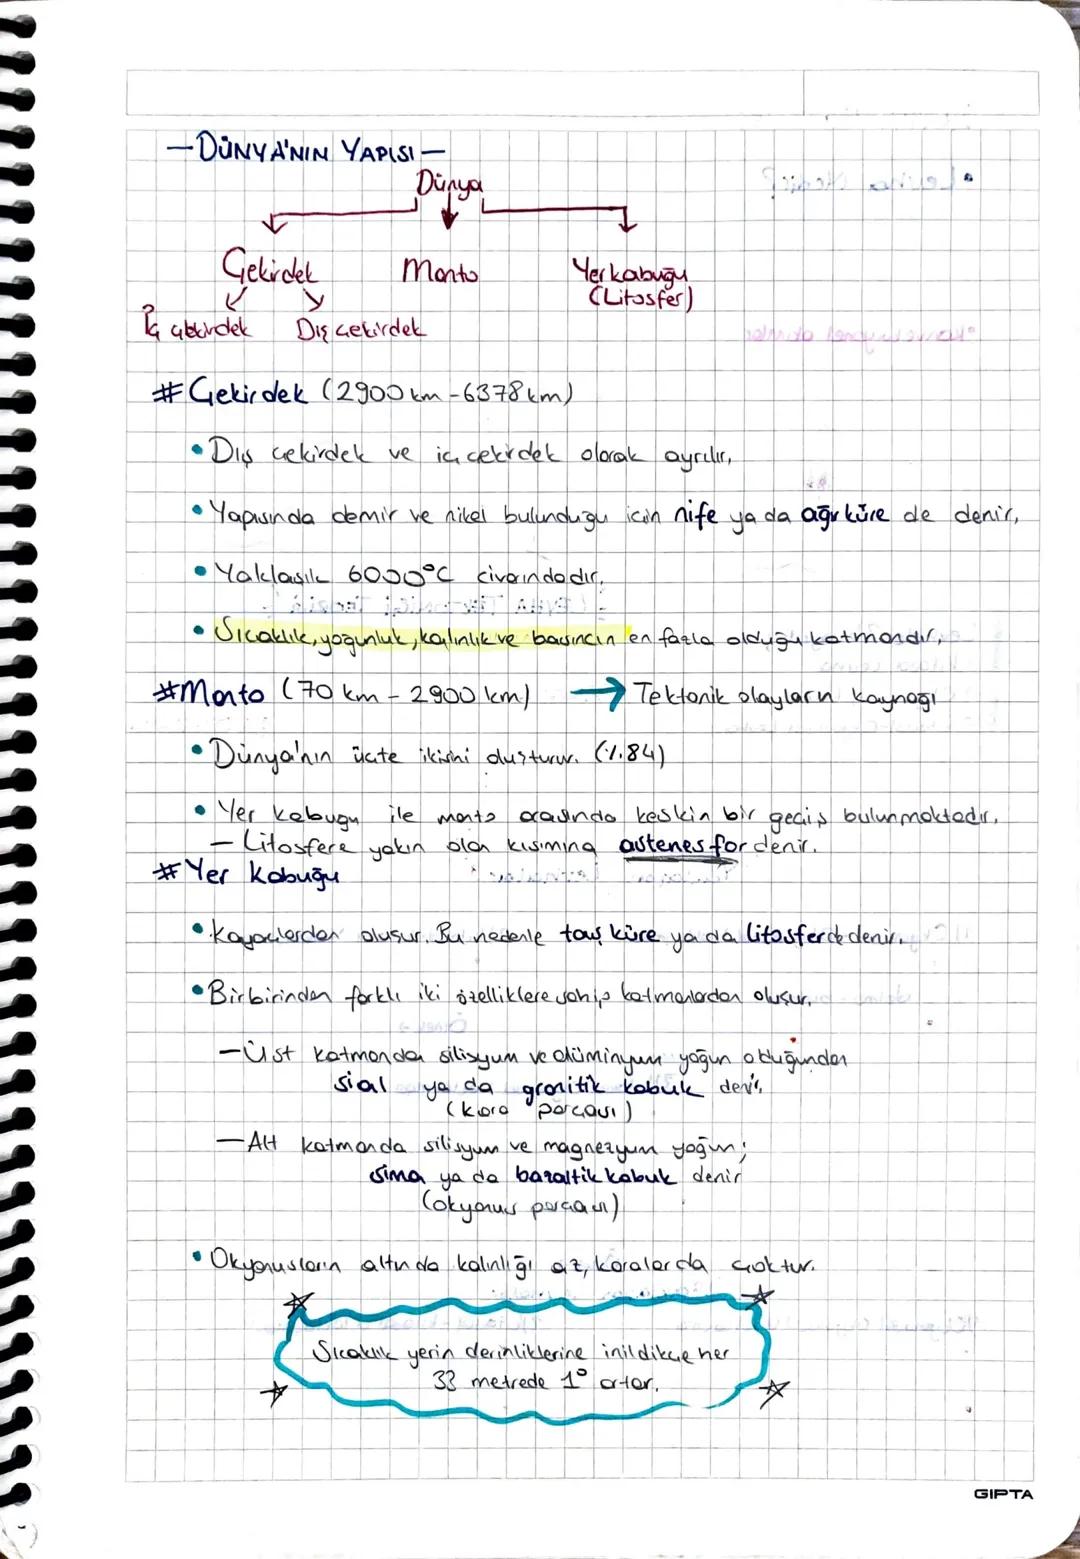 — DÜNYA'NIN YAPISI —
Dünya
Çekirdek Manto Yerkabuğu
(Litosfer)
İç çekirdek Dış çekirdek
# Çekirdek (2900 km - 6378 km)
• Dış çekirdek ve iç çekirdek olarak ayrılır.
• Yapısında demir ve nikel bulunduğu için nife ya da ağır küre de denir.
• Yaklaşık 6000°C civarındadır.
• Sıcaklık, yoğunluk, kalınlık ve basıncın en fazla olduğu katmandır.
# Manto (70 km - 2900 km) → Tektonik olayların kaynağı
• Dünya'nın üçte ikisini oluşturur. (%84)
• Yer kabuğu ile manto arasında keskin bir geçiş bulunmaktadır.
— Litosfere yakın olan kısımına astenesfor denir.
# Yer Kabuğu
• Kayaçlardan oluşur. Bu nedenle taş küre ya da litosfer de denir.
• Birbirinden farklı iki özelliklere sahip katmanlardan oluşur.
— Üst katmanda silisyum ve alüminyum yoğun olduğundan
sial ya da granitik kabuk denir.
(kara parçası)
— Alt katmanda silisyum ve magnezyum yoğun;
sima ya da bazaltik kabuk denir
(okyanus parçası)
• Okyanusların altında kalınlığı az, karalarda çoktur.
Sıcaklık yerin derinliklerine inildikçe her
33 metrede 1° artar.
GIPTA